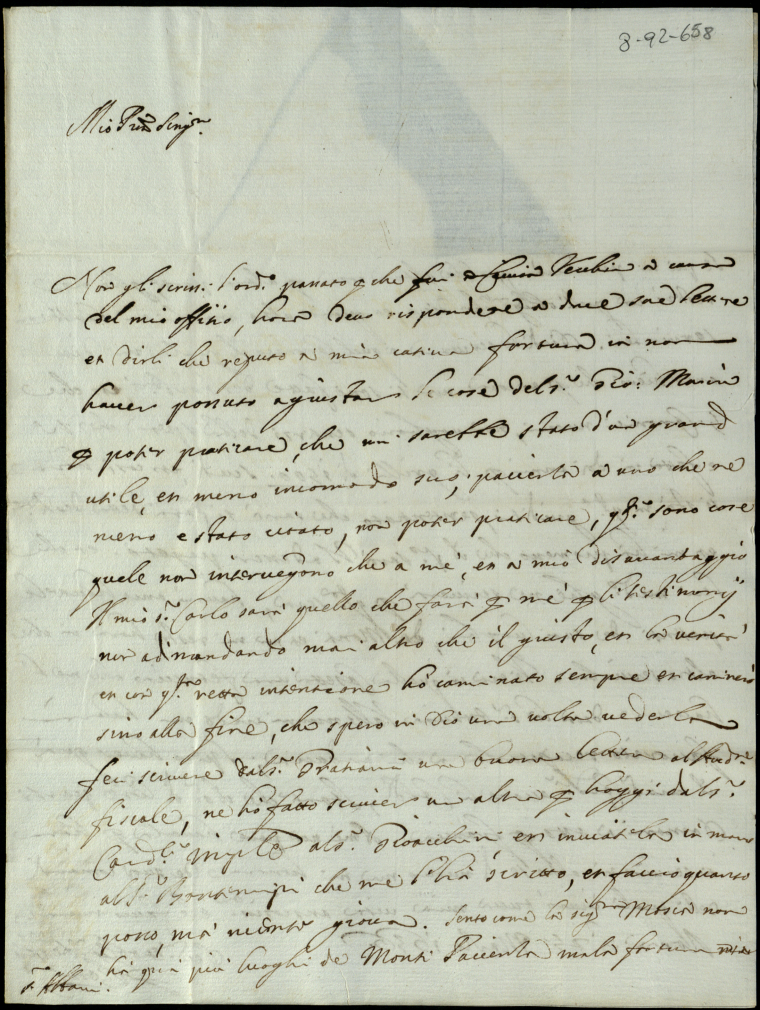 8-92-658
Mio Sig.r
Non gli scrissi l'ord.o passato p che fui a Civita Vecchia a causa
del mio offitio, hora devo rispondere a due sue lettere
et dirli che reputo a mia cativa fortuna in non
haver possuto agiustar le cose del s.r Gio: Maria
p poter praticare, che mi sarebbe stato d'un grand
utile, et meno incomodo suo; patientia a uno che ne
meno e stato citato, non poter praticare, q.te sono cose
quele non intervengono che a me, et a mio disavantaggio
Il mio s.r Carlo sarà quello che farà p me p li testimonij
non adimandando mai altro che il giusto, et la verità
et con q.ta retta intentione hò caminato sempre et caminerò
sino alla fine, che spero in Dio una volta vederla
feci scrivere dal s.r una buona lettera
fiscale, ne hò fatto scriver un altra p hoggi dal s.r
Card.le al s.r Gioacchini et inviatela in mano
al s.r Bontempi che me l'hà scritto, et faccio quanto
posso, mà niente giova. Sento come la sig.ra Maria non
hà quà più luoghi de Monti Patientia mala fortuna